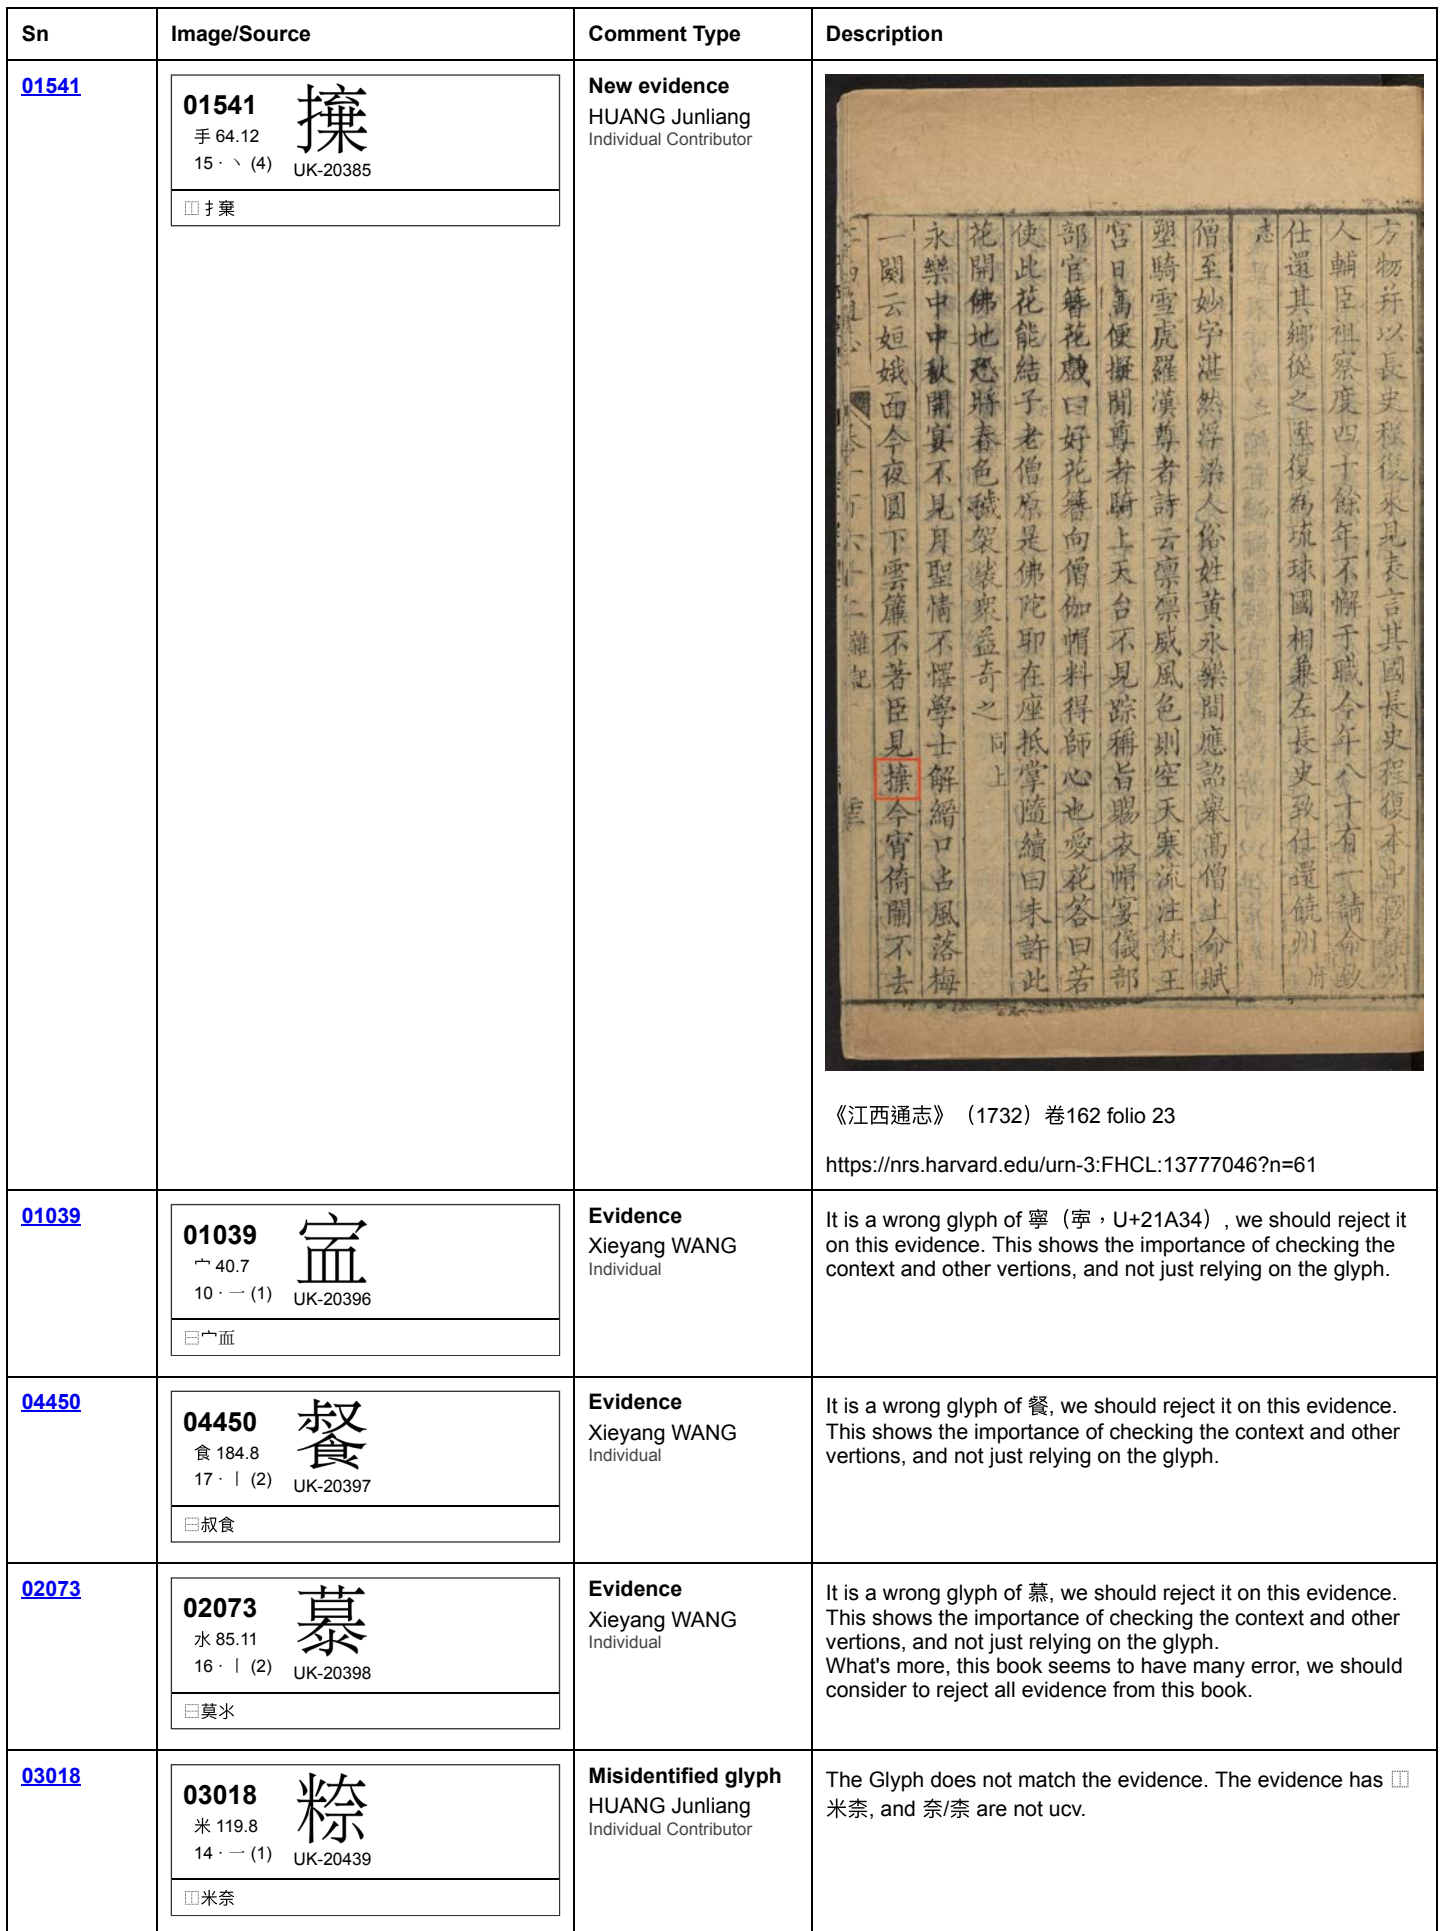 Sn Image/Source Comment Type Description
01541
01541
手 64.12
15 · 丶 (4)
UK-20385
⿰扌棄
New evidence
HUANG Junliang
Individual Contributor
方物并以長史程復來見表言其國長史程復本中國饒州
人輔臣祖察度四十餘年不懈于職今年八十有一請命致
仕還其鄉從之陞復為琉球國相兼左長史致仕還饒州 府
志
僧至妙字湛然浮梁人俗姓黄永樂間應詔舉高僧上命賦
塑騎雪虎羅漢尊者詩云凛凛威風色則空天寒流注梵王
宮日高便擬閒尊者騎上天台不見踪稱旨賜衣帽宴儀部
部官簪花戲曰好花簪向僧伽帽料得師心也愛花答曰若
使此花能結子老僧原是佛陀耶在座抵掌隨續曰未許此
花開佛地恐將春色穢袈裟衆益奇之 同上
永樂中中秋開宴不見月聖情不懌學士解縉口占風落梅
一闋云姮娥面今夜圓下雲簾不著臣見㨷今宵倚闌不去
《江西通志》（1732）卷162 folio 23
https://nrs.harvard.edu/urn-3:FHCL:13777046?n=61
01039
01039
宀 40.7
10 · 一 (1)
UK-20396
⿱宀面
Evidence
Xieyang WANG
Individual
It is a wrong glyph of 寧（寍，U+21A34）, we should reject it
on this evidence. This shows the importance of checking the
context and other vertions, and not just relying on the glyph.
04450
04450
食 184.8
17 · 丨 (2)
UK-20397
⿱叔食
Evidence
Xieyang WANG
Individual
It is a wrong glyph of 餐, we should reject it on this evidence.
This shows the importance of checking the context and other
vertions, and not just relying on the glyph.
02073
02073
水 85.11
16 · 丨 (2)
UK-20398
⿱莫氺
Evidence
Xieyang WANG
Individual
It is a wrong glyph of 慕, we should reject it on this evidence.
This shows the importance of checking the context and other
vertions, and not just relying on the glyph.
What's more, this book seems to have many error, we should
consider to reject all evidence from this book.
03018
03018
米 119.8
14 · 一 (1)
UK-20439
⿰米奈
Misidentified glyph
HUANG Junliang
Individual Contributor
The Glyph does not match the evidence. The evidence has ⿰
米柰, and 奈/柰 are not ucv.